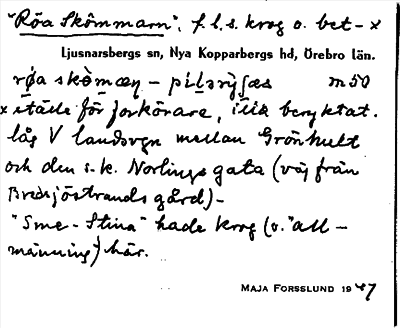 "Röa Skömmarn", f.l.s. krog o. bet- x
Ljusnarsbergs sn, Nya Kopparbergs hd, Örebro län.
m50
x ställe för forkörare, illa beryktat.
låg V landsvgn mellan Grönhult
och den s.k. Norlings gata (väg från
Bredsjöstrands gård)-
"Sme-Stina" hade krog (o. "all-
männing") här.
MAJA FORSSLUND 1947